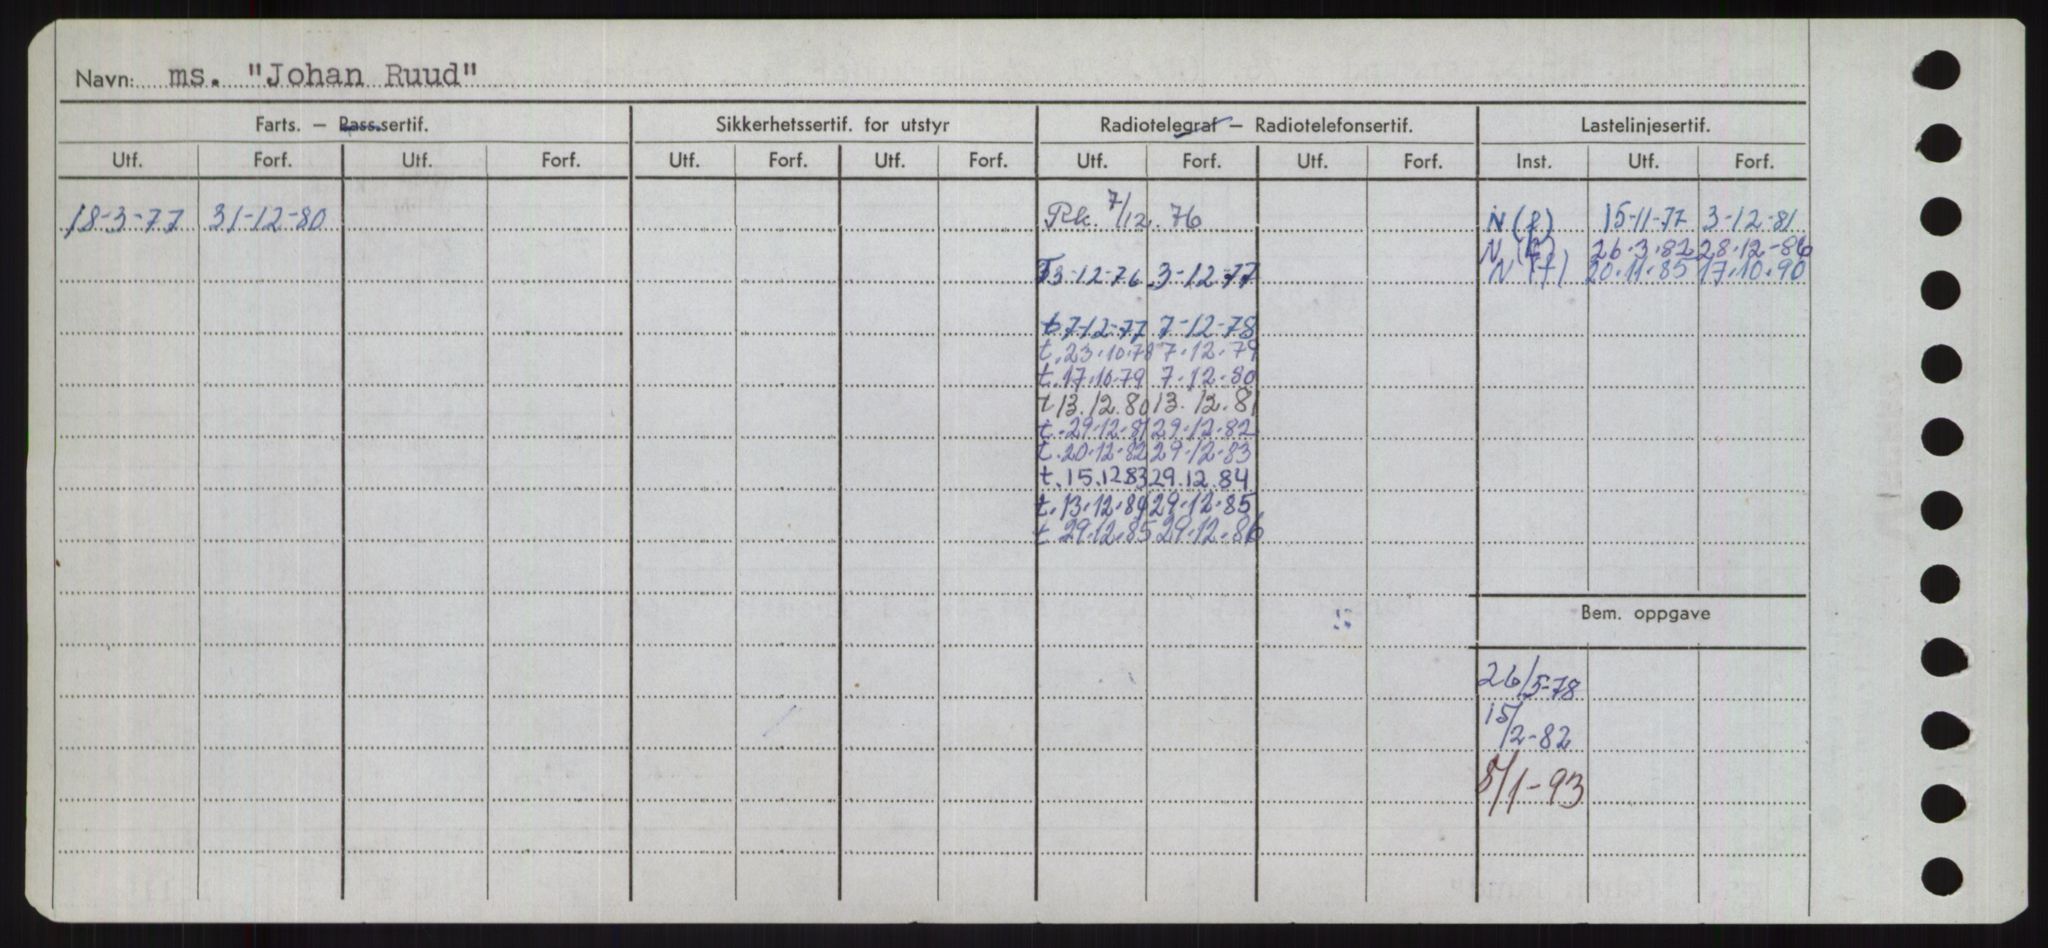 Navn: ms. "Johan Ruud"
Farts. — Pass.sertif. Sikkerhetssertif. for utstyr Radiotelegraf — Radiotelefonsertif. Lastelinjesertif.
Utf. Forf. Utf. Forf. Utf. Forf. Utf. Forf. Utf. Forf. Utf. Forf. Inst. Utf. Forf.
18-3-77 31-12-80 Rk. 7/12.76 N 15-11-77 3-12-81
N 26.3.82 28.12-86
T3-12-76 3-12-77 N 20.11.85 17.10.90
t 7-12-77 7-12-78
t. 23.10.78 7.12.79
t. 17.10.79 7.12.80
t 13.12.80 13.12.81
t. 29.12.81 29.12.82
t. 20.12.82 29.12.83
t. 15.12.83 29.12.84
t. 13.12.84 29.12.85
t. 29.12.85 29.12.86
Bem. oppgave
26/5-78
15/2-82
8/1-93